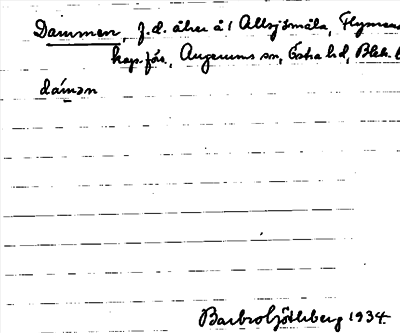 Dammen, f.d. åker å 1 Allsjömåla, Flymens
kaps. förs., Augerums sn, Östra hd, Blek. l
dámən
Barbro Göthberg 1934.